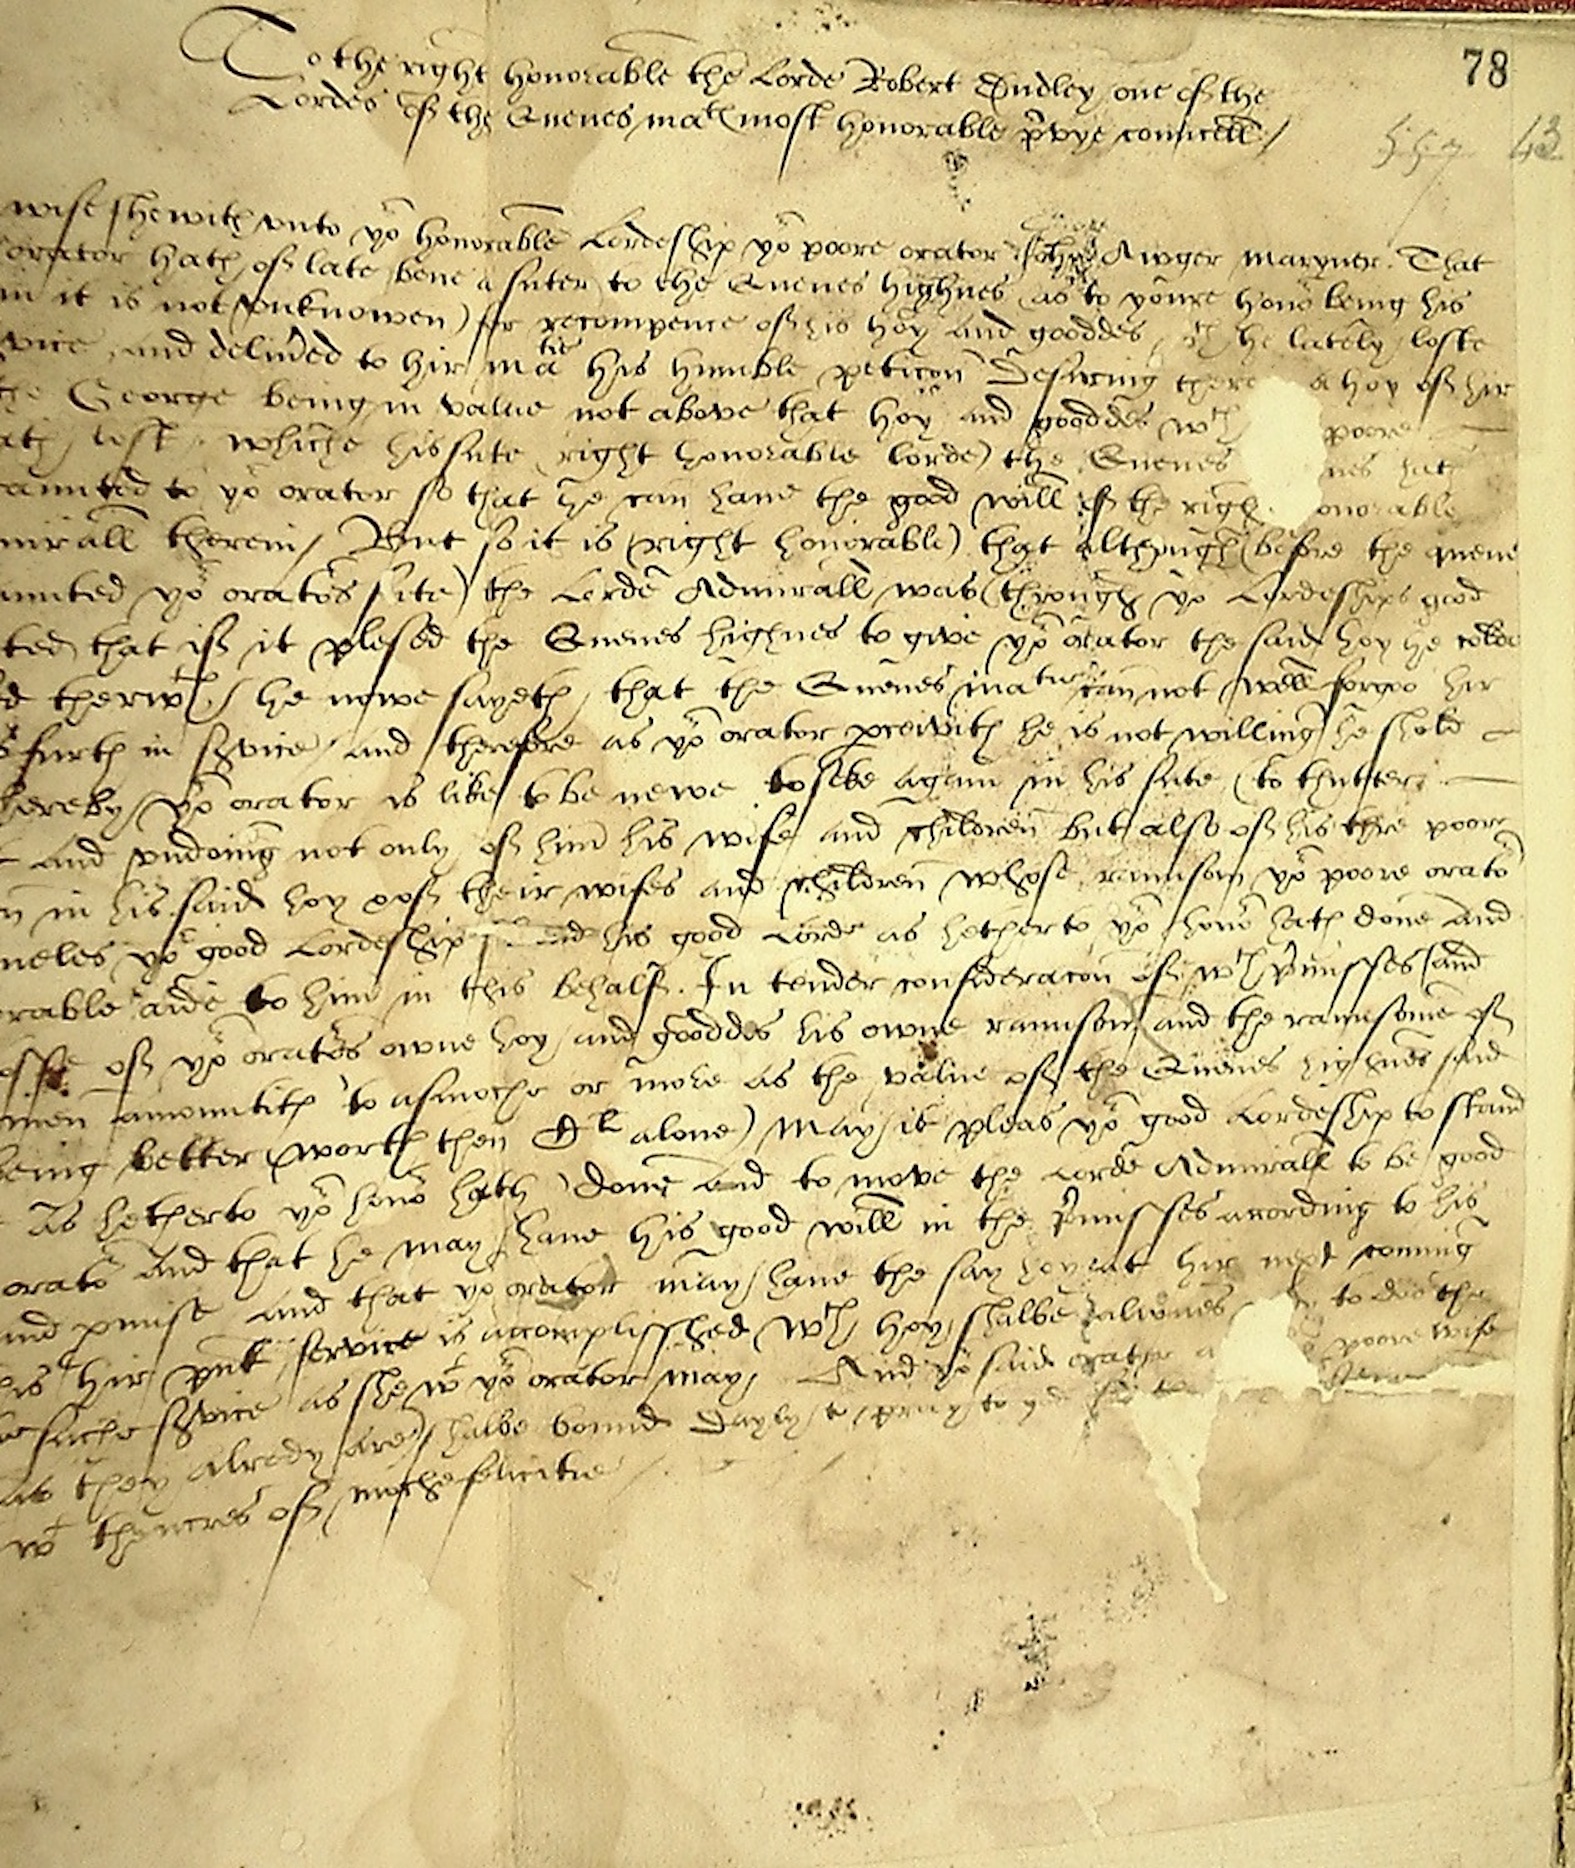 78
To the right honorable the Lorde Robert Dudley one of the
Lordes of the Quenes ma^tes most honorable pryvye councell /
557 43
wise shewith vnto yo^r honorable Lordeship yo^r poore orator Awger maryner. That
orator hath of late bene a suter to the Quenes highnes (as to youre hono^r being his
in it is not vnknowen) for recompence of his hoy and gooddes, w^ch he lately loste
vice, and deliu^ed to hir ma^tie his humble peticon Desiring there a hoy of hir
the George being in value not above that hoy and gooddes w^ch poore
ath lost. whiche his sute (right honorable lorde) the Quenes nes hath
raunted to yo^r orator so that he can haue the good will of the righ onorable
mirall therein / But so it is (right honorable) that although (before the quene
aunted yo^r orato^rs sute) the Lorde Admirall was (through yo^r Lordeships good
ted that if it plesed the Quenes highnes to give yo^r orator the said hoy he
d therw^th / he nowe sayeth, that the Quenes ma^tie can not well forgoo hir
furth in s^rvice / and therefore as yo^r orator p^rceivith he is not willing he shold
hereby yo^r orator is like to be newe to seke again in his sute (to thutter
and vndoing not only of him his wife and children but also of his thre poore
n in his said hoy & of their wifes and children whose raunsom yo^r poore orato^r
neles yo^r good Lordeship his good Lorde as hetherto yo^r hono^r hath done and
orable aide to him in this behalf. In tender consideracon of w^ch p^rmisses (and
osse of yo^r orato^rs owne hoy and gooddes his owne raunsom and the raunsome of
men amountith to asmoche or more as the value of the Quenes highnes said
being better worth then C^li alone) May it pleas yo^r good Lordeship to stand
As hetherto yo^r hono^r hath done And to move the Lorde Admirall to be good
orato^r And that he may haue his good will in the p^rmisses according to his
and p^rmise and that yo^r orator may haue the say hoy at hir next coming
his hir p^nt service is accomplisshed w^ch hoy shalbe alwaies to doo the
suche s^rvice as shew^t yo^r orator may. And yo^r said orator poore wife
as they alredy are shalbe bound dayly to pray to
w^t thincres of muche felicitie